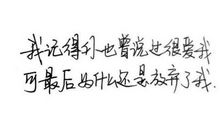 我记得你也曾说过很爱我
可最后为什么还是放弃了我.